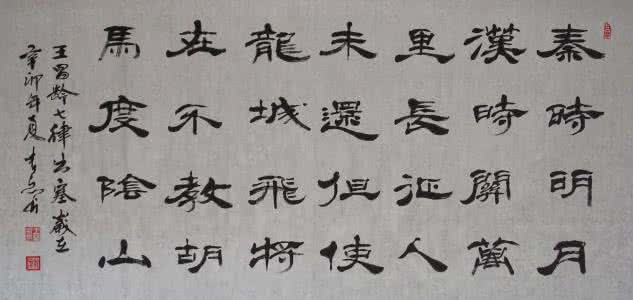 秦時明月
漢時關萬
里長征人
未還但使
龍城飛將
在不教胡
馬度陰山
王昌齡七律出塞歲在
辛卯年夏